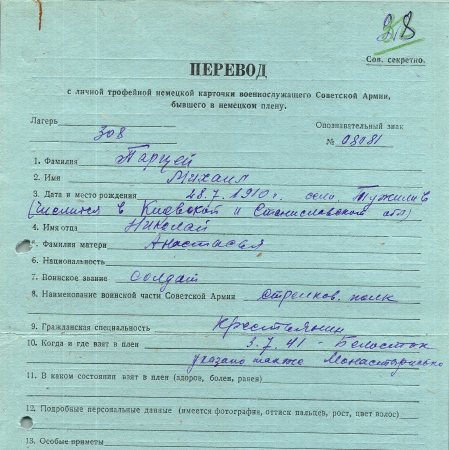 8
Сов. секретно.
ПЕРЕВОД
с личной трофейной немецкой карточки военнослужащего Советской Армии,
бывшего в немецком плену.
Лагерь
Опознавательный знак
308
№ 08081
1. Фамилия Парцей
2. Имя Михаил
3. Дата и место рождения 28.7.1910г. село Тужилив
(числится в Киевской и Станиславской обл)
4. Имя отца Николай
5. Фамилия матери Анастасья
6. Национальность
7. Воинское звание солдат
8. Наименование воинской части Советской Армии стрелков. полк
9. Гражданская специальность крестьянин
10. Когда и где взят в плен 3.7.41 - Белосток
указано также
11. В каком состоянии взят в плен (здоров, болен, ранен)
12. Подробные персональные данные (имеется фотография, оттиск пальцев, рост, цвет волос)
13. Особые приметы